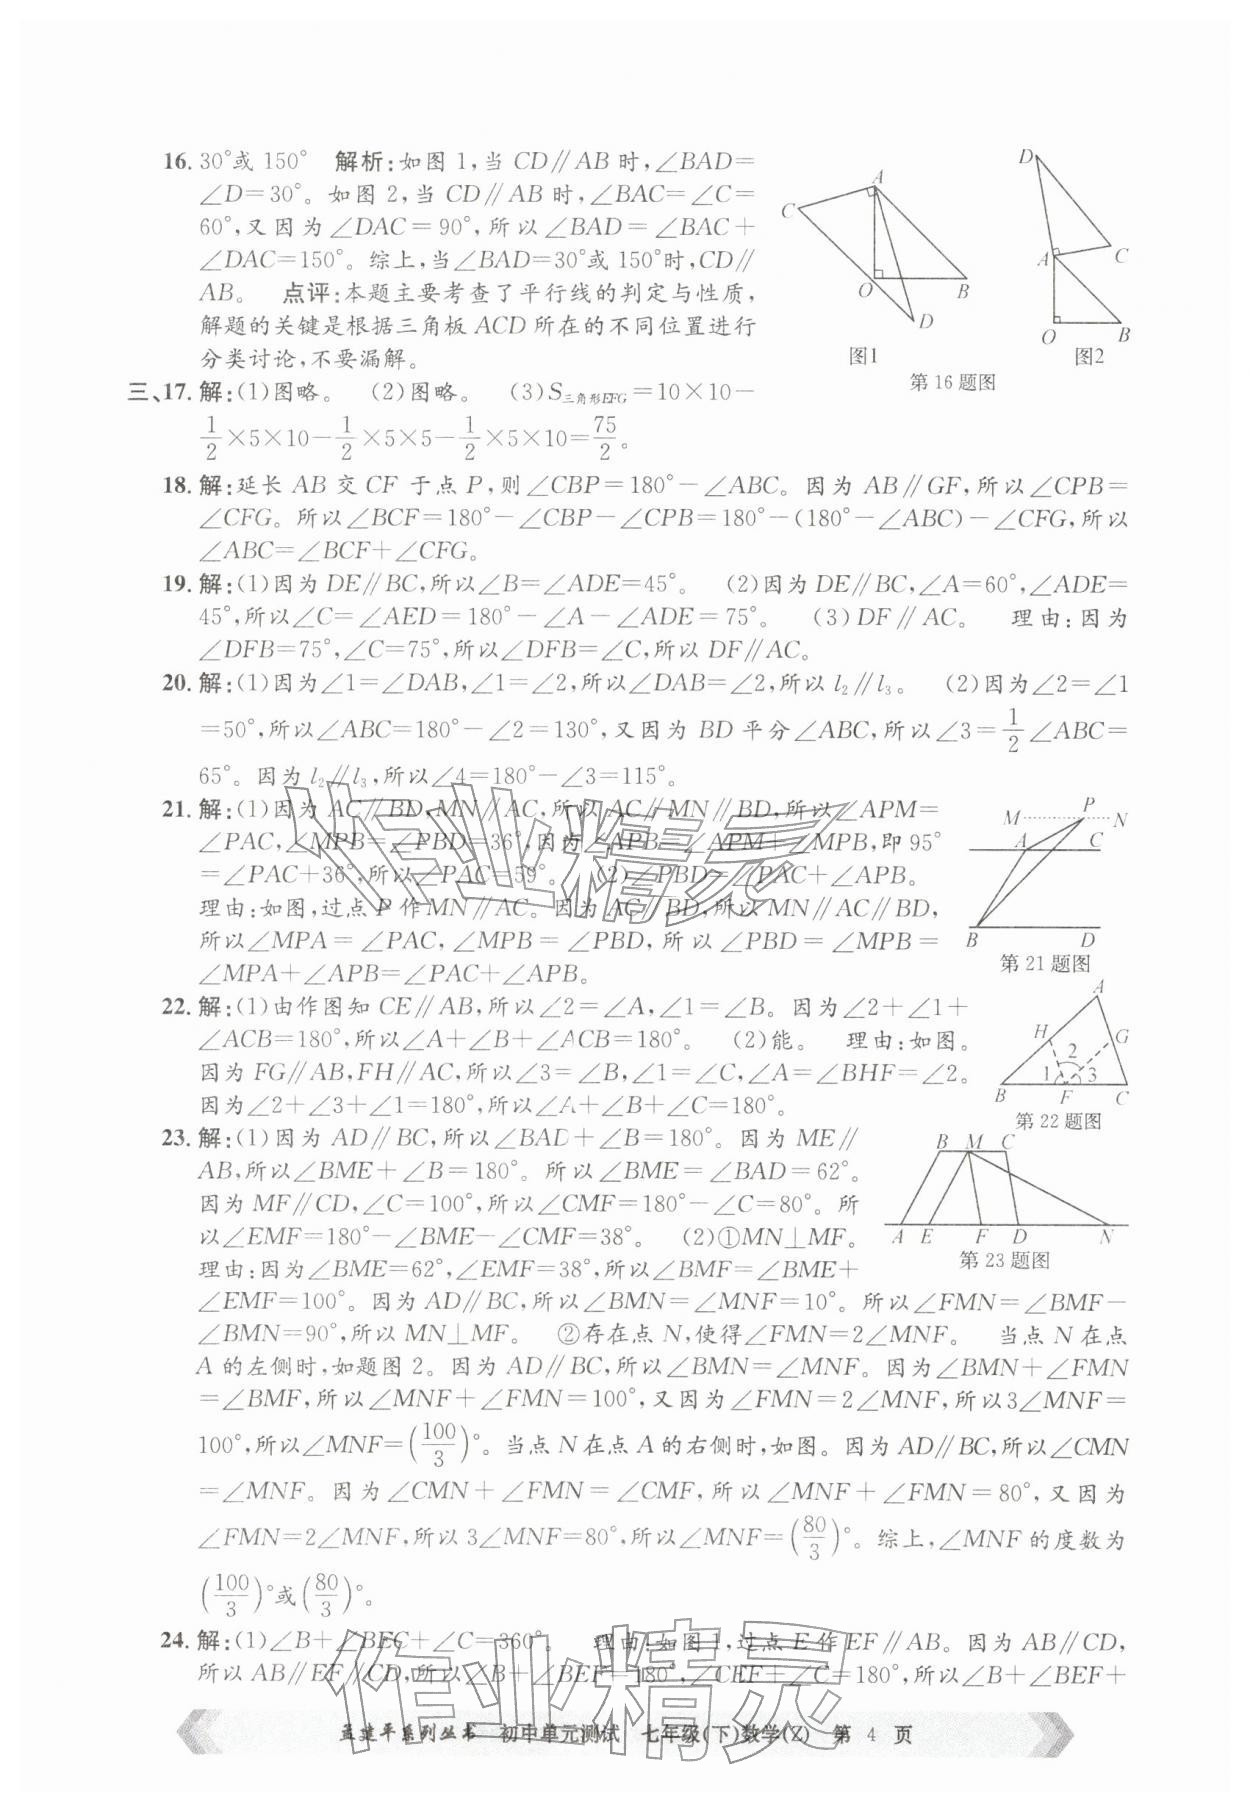 16. 30°或 150° 解析:如图 1,当 CD∥AB 时,∠BAD=
∠D=30°。如图 2,当 CD∥AB 时,∠BAC=∠C=
60°,又因为∠DAC=90°,所以∠BAD=∠BAC+
∠DAC=150°。综上,当∠BAD=30°或150°时,CD∥
AB。 点评:本题主要考查了平行线的判定与性质,
解题的关键是根据三角板 ACD 所在的不同位置进行
分类讨论,不要漏解。
A
C
O
B
D
图1
D
A
C
O
B
图2
第16题图
三、17. 解:(1)图略。 (2)图略。 (3)S三角形EFG=10×10-
1/2×5×10-1/2×5×5-1/2×5×10=75/2。
18. 解:延长 AB 交 CF 于点 P,则∠CBP=180°-∠ABC。因为 AB∥GF,所以∠CPB=
∠CFG。所以∠BCF=180°-∠CBP-∠CPB=180°-(180°-∠ABC)-∠CFG,所以
∠ABC=∠BCF+∠CFG。
19. 解:(1)因为 DE∥BC,所以∠B=∠ADE=45°。 (2)因为DE∥BC,∠A=60°,∠ADE=
45°,所以∠C=∠AED=180°-∠A-∠ADE=75°。 (3)DF∥AC。 理由:因为
∠DFB=75°,∠C=75°,所以∠DFB=∠C,所以 DF∥AC。
20. 解:(1)因为∠1=∠DAB,∠1=∠2,所以∠DAB=∠2,所以 l₂∥l₃。 (2)因为∠2=∠1
=50°,所以∠ABC=180°-∠2=130°,又因为 BD 平分∠ABC,所以∠3=1/2∠ABC=
65°。因为 l₂∥l₃,所以∠4=180°-∠3=115°。
21. 解:(1)因为 AC∥BD,MN∥AC,所以 AC∥MN∥BD,所以∠APM=
∠PAC,∠MPB=∠PBD=36°,因为∠APB=∠APM+∠MPB,即 95°
=∠PAC+36°,所以∠PAC=59°。 (2)∠PBD=∠PAC+∠APB。
理由:如图,过点 P 作 MN∥AC。因为 AC∥BD,所以 MN∥AC∥BD,
所以∠MPA=∠PAC,∠MPB=∠PBD,所以∠PBD=∠MPB=
∠MPA+∠APB=∠PAC+∠APB。
P
M
N
A
C
B
D
第21题图
22. 解:(1)由作图知 CE∥AB,所以∠2=∠A,∠1=∠B。因为∠2+∠1+
∠ACB=180°,所以∠A+∠B+∠ACB=180°。 (2)能。 理由:如图。
因为 FG∥AB,FH∥AC,所以∠3=∠B,∠1=∠C,∠A=∠BHF=∠2。
因为∠2+∠3+∠1=180°,所以∠A+∠B+∠C=180°。
A
H
G
2
1
3
B
F
C
第22题图
23. 解:(1)因为 AD∥BC,所以∠BAD+∠B=180°。因为 ME∥
AB,所以∠BME+∠B=180°。所以∠BME=∠BAD=62°。
因为 MF∥CD,∠C=100°,所以∠CMF=180°-∠C=80°。所
以∠EMF=180°-∠BME-∠CMF=38°。 (2)①MN⊥MF。
理由:因为∠BME=62°,∠EMF=38°,所以∠BMF=∠BME+
∠EMF=100°。因为 AD∥BC,所以∠BMN=∠MNF=10°。所以∠FMN=∠BMF-
∠BMN=90°,所以 MN⊥MF。 ②存在点 N,使得∠FMN=2∠MNF。 当点 N 在点
A 的左侧时,如题图 2。因为 AD∥BC,所以∠BMN=∠MNF。因为∠BMN+∠FMN
=∠BMF,所以∠MNF+∠FMN=100°,又因为∠FMN=2∠MNF,所以3∠MNF=
100°,所以∠MNF=(100/3)°。当点 N 在点 A 的右侧时,如图。因为 AD∥BC,所以∠CMN
=∠MNF。因为∠CMN+∠FMN=∠CMF,所以∠MNF+∠FMN=80°,又因为
∠FMN=2∠MNF,所以 3∠MNF=80°,所以∠MNF=(80/3)°。综上,∠MNF 的度数为
(100/3)°或(80/3)°。
B
M
C
A
E
F
D
N
第23题图
24. 解:(1)∠B+∠BEC+∠C=360°。 理由:如图 1,过点 E 作 EF∥AB。因为 AB∥CD,
所以 AB∥EF∥CD,所以∠B+∠BEF=180°,∠CEF+∠C=180°,所以∠B+∠BEF+
孟建平系列丛书 初中单元测试 七年级(下)数学(Z) 第 4 页
作业精灵
作业精灵